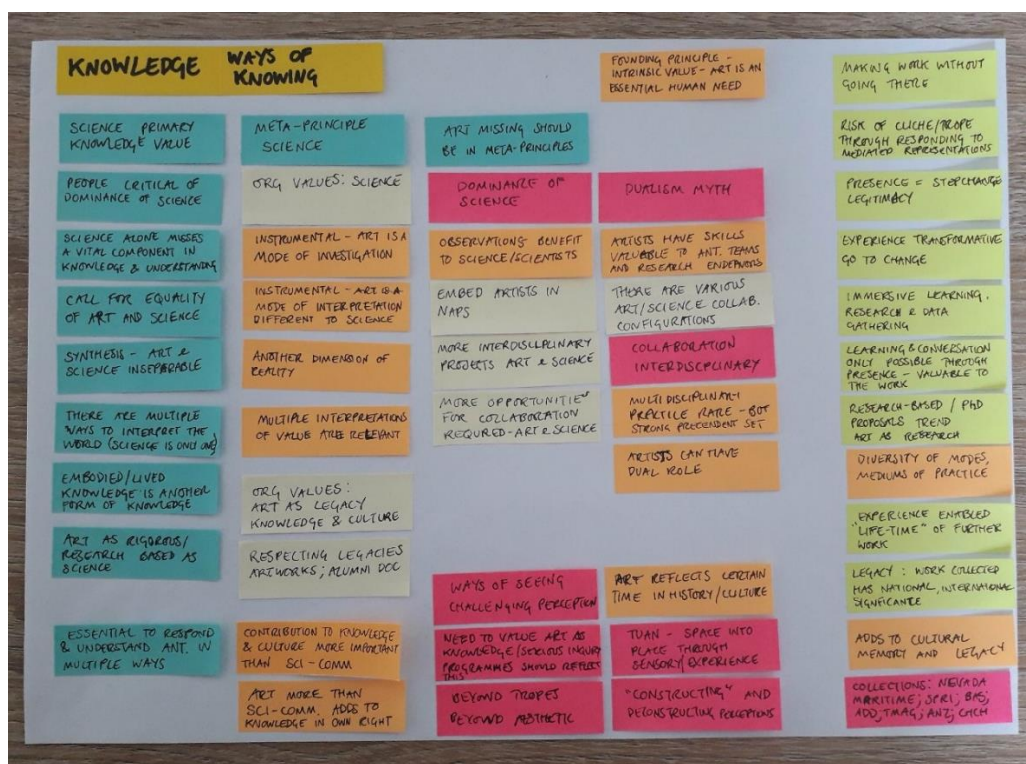 KNOWLEDGE WAYS OF
KNOWING
SCIENCE PRIMARY
KNOWLEDGE VALUE
PEOPLE CRITICAL OF
DOMINANCE OF SCIENCE
SCIENCE ALONE MISSES
A VITAL COMPONENT IN
KNOWLEDGE & UNDERSTANDING
CALL FOR EQUALITY
OF ART AND SCIENCE
SYNTHESIS - ART &
SCIENCE INSEPERABLE
THERE ARE MULTIPLE
WAYS TO INTERPRET THE
WORLD (SCIENCE IS ONLY ONE)
EMBODIED/LIVED
KNOWLEDGE IS ANOTHER
FORM OF KNOWLEDGE
ART AS RIGOROUS/
RESEARCH BASED AS
SCIENCE
ESSENTIAL TO RESPOND
& UNDERSTAND ANT. IN
MULTIPLE WAYS
META-PRINCIPLE
SCIENCE
ORG VALUES: SCIENCE
INSTRUMENTAL - ART IS A
MODE OF INVESTIGATION
INSTRUMENTAL - ART IS A
MODE OF INTERPRETATION
DIFFERENT TO SCIENCE
ANOTHER DIMENSION OF
REALITY
MULTIPLE INTERPRETATIONS
OF VALUE ARE RELEVANT
ORG VALUES:
ART AS LEGACY
KNOWLEDGE & CULTURE
RESPECTING LEGACIES
ARTWORKS; ALUMNI DOC
CONTRIBUTION TO KNOWLEDGE
& CULTURE MORE IMPORTANT
THAN SCI-COMM
ART MORE THAN
SCI-COMM. ADDS TO
KNOWLEDGE IN OWN RIGHT
ART MISSING SHOULD
BE IN META-PRINCIPLES
DOMINANCE OF
SCIENCE
OBSERVATIONS BENEFIT
TO SCIENCE/SCIENTISTS
EMBED ARTISTS IN
NAPS
MORE INTERDISCIPLINARY
PROJECTS ART & SCIENCE
MORE OPPORTUNITIES
FOR COLLABORATION
REQUIRED - ART & SCIENCE
WAYS OF SEEING
CHALLENGING PERCEPTION
NEED TO VALUE ART AS
KNOWLEDGE/SERIOUS INQUIRY
PROGRAMMES SHOULD REFLECT
THIS
BEYOND TROPES
BEYOND AESTHETIC
FOUNDING PRINCIPLE -
INTRINSIC VALUE - ART IS AN
ESSENTIAL HUMAN NEED
DUALISM MYTH
ARTISTS HAVE SKILLS
VALUABLE TO ANT. TEAMS
AND RESEARCH ENDEAVORS
THERE ARE VARIOUS
ART/SCIENCE COLLAB.
CONFIGURATIONS
COLLABORATION
INTERDISCPLINARY
MULTIDISCIPLINARY
PRACTICE RARE - BUT
STRONG PRECENDENT SET
ARTISTS CAN HAVE
DUAL ROLE
ART REFLECTS CERTAIN
TIME IN HISTORY/CULTURE
TUAN - SPACE INTO
PLACE THROUGH
SENSORY/EXPERIENCE
"CONSTRUCTING" AND
DECONSTRUCTING PERCEPTIONS
MAKING WORK WITHOUT
GOING THERE
RISK OF CLICHE/TROPE
THROUGH RESPONDING TO
MEDIATED REPRESENTATIONS
PRESENCE = STEPCHANGE
LEGITIMACY
EXPERIENCE TRANSFORMATIVE
GO TO CHANGE
IMMERSIVE LEARNING,
RESEARCH & DATA
GATHERING
LEARNING & CONVERSATION
ONLY POSSIBLE THROUGH
PRESENCE - VALUABLE TO
THE WORK
RESEARCH-BASED / PHD
PROPOSALS TREND
ART AS RESEARCH
DIVERSITY OF MODES,
MEDIUMS OF PRACTICE
EXPERIENCE ENABLED
"LIFE-TIME" OF FURTHER
WORK
LEGACY : WORK COLLECTED
HAS NATIONAL, INTERNATIONAL
SIGNFICANCE
ADDS TO CULTURAL
MEMORY AND LEGACY
COLLECTIONS: NEVADA
MARITIME; SPRI; BAS;
ADD; TMAG; ANZ; CHCH